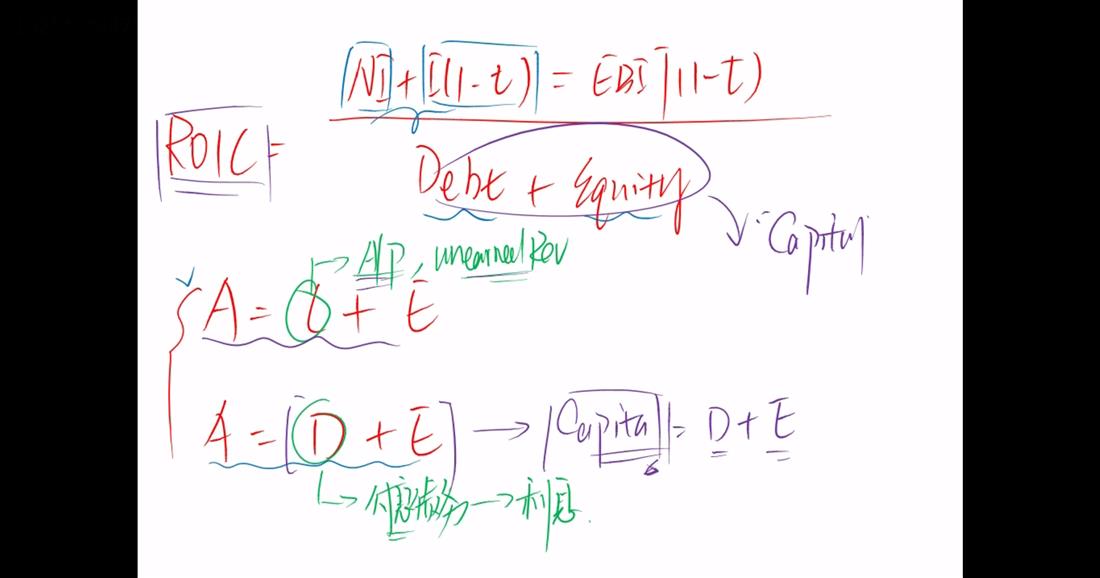 NI + I(1-t) = EBIT(1-t)
ROIC =
Debt + Equity
Capital
A/P, unearned Rev
A = L + E
A = [D + E] → Capital = D + E
付息债务 → 利息.